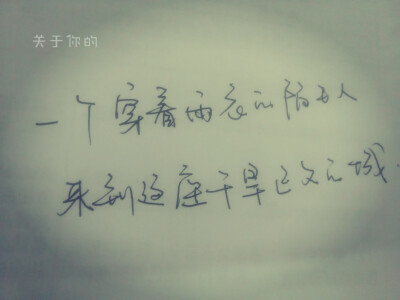 关于你的
一个穿着雨衣的陌生人
来到这座干旱已久的城.